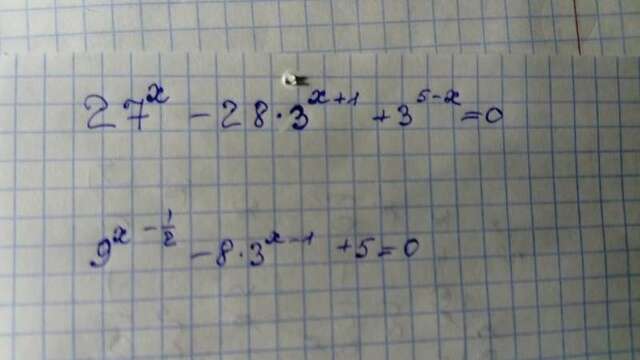 27^x - 28·3^{x+1} + 3^{5-x} = 0
9^{x - 1/2} - 8·3^{x-1} + 5 = 0